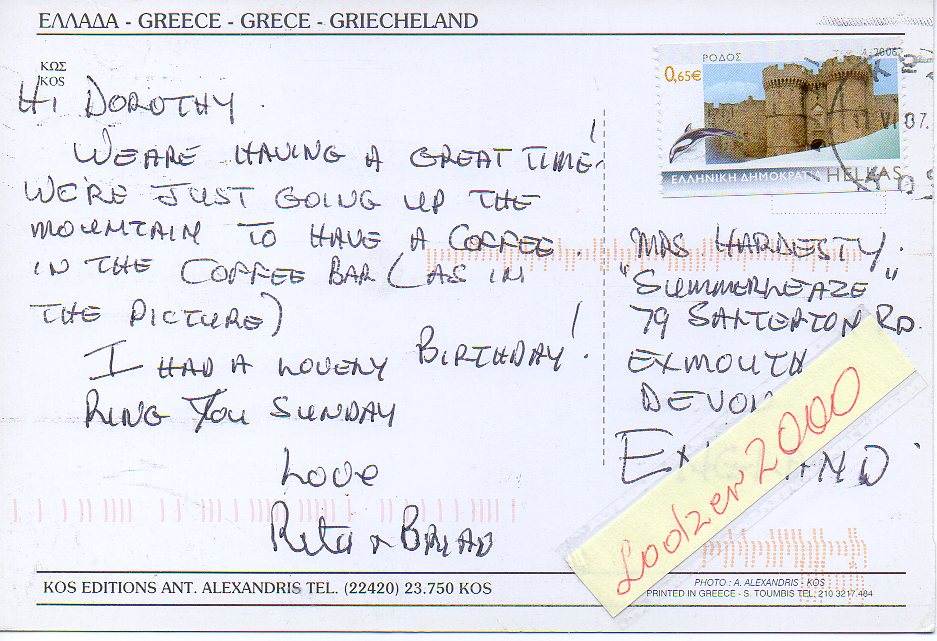 ΕΛΛΑΔΑ - GREECE - GRECE - GRIECHELAND
ΚΩΣ
KOS
HI DOROTHY.
WE ARE HAVING A GREAT TIME!
WE'RE JUST GOING UP THE
MOUNTAIN TO HAVE A COFFEE.
IN THE COFFEE BAR (AS IN
THE PICTURE)
I HAD A LOVELY BIRTHDAY!
RING YOU SUNDAY
Love
Rita & BRIAN
ΡΟΔΟΣ
2006
0,65€
07
ΕΛΛΗΝΙΚΗ ΔΗΜΟΚΡΑΤΙΑ HELLAS
MRS HARDESTY.
"SUMMERLEAZE"
79 SALTERTON RD.
EXMOUTH
DEVON
Lodzer2000
KOS EDITIONS ANT. ALEXANDRIS TEL. (22420) 23.750 KOS
PHOTO : A. ALEXANDRIS - KOS
PRINTED IN GREECE - S. TOUMBIS TEL. 210 3217.484